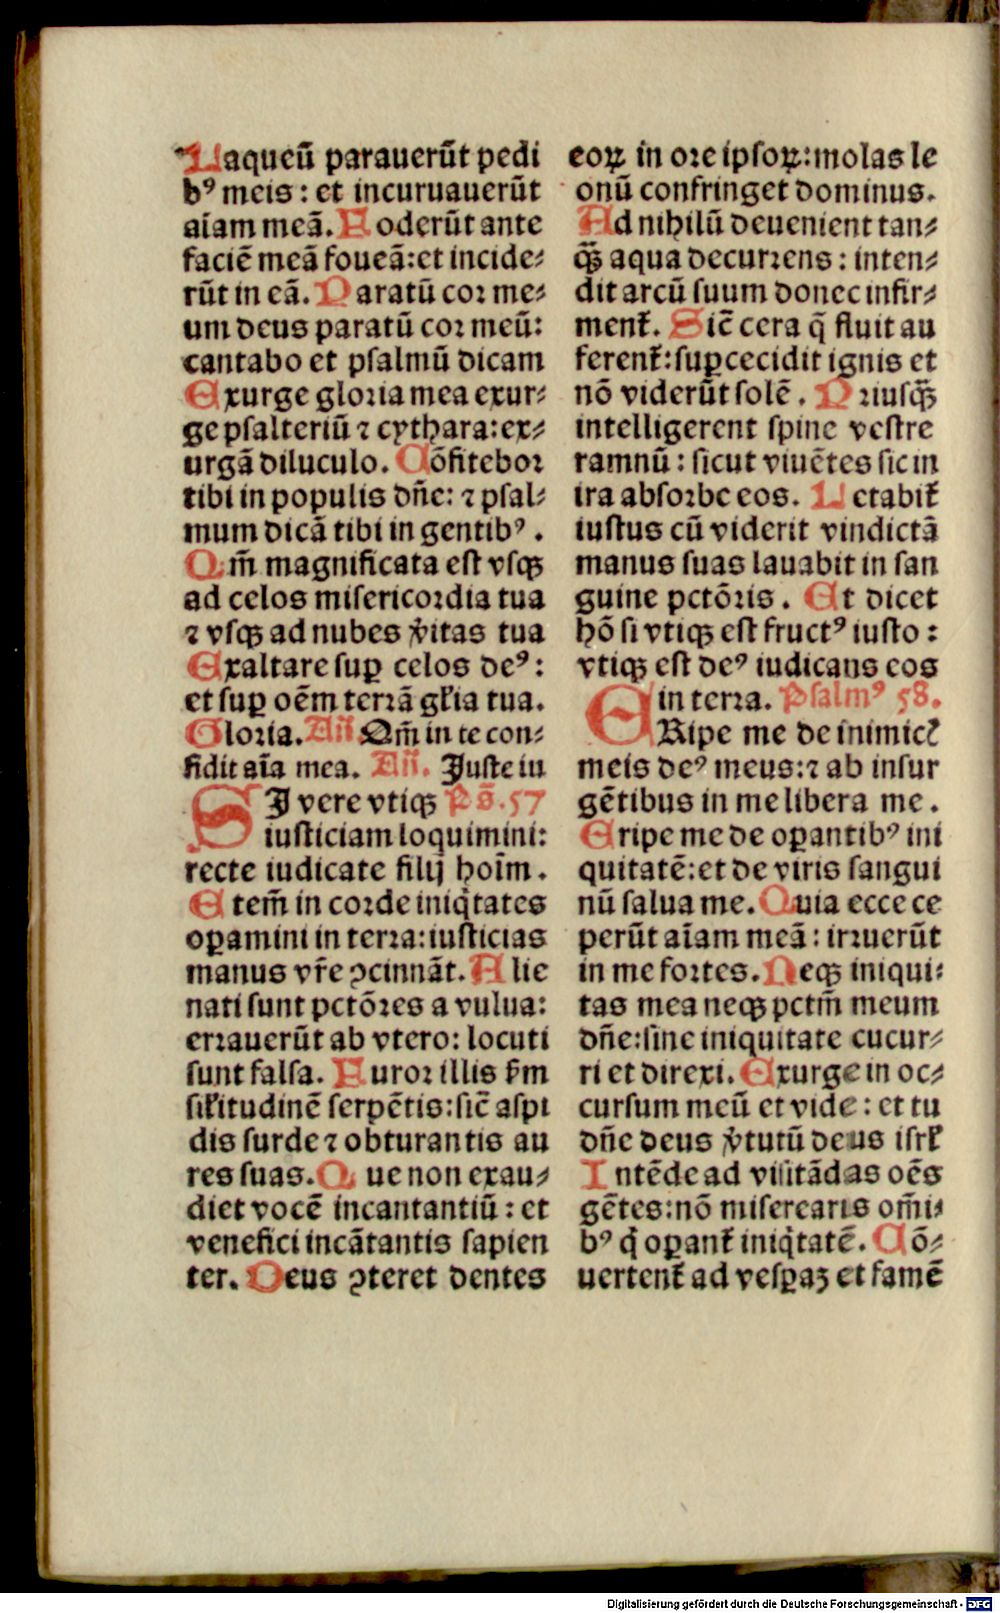 Laqueū parauerūt pedi
bꝰ meis: et incuruauerūt
aīam meā. Foderūt ante
faciē meā foueā: et incide⸗
rūt in eā. Paratū coꝛ me⸗
um deus paratū coꝛ meū:
cantabo et psalmū dicam
Exurge gloꝛia mea exur⸗
ge psalteriū ⁊ cythara: ex⸗
urgā diluculo. Cōfiteboꝛ
tibi in populis dn̄e: ⁊ psal⸗
mum dicā tibi in gentibꝰ.
Qm̄ magnificata est vsqꝫ
ad celos misericoꝛdia tua
⁊ vsqꝫ ad nubes v̾itas tua
Exaltare suꝑ celos deꝰ:
et suꝑ oēm terrā gl̓ia tua.
Gloꝛia. Añ Qm̄ in te con⸗
fidit aīa mea. Añ. Juste iu
SJ vere vtiqꝫ Ps̄. 57
iusticiam loquimini:
recte iudicate filij hoīm.
Etem̄ in coꝛde iniq̇tates
oꝑamini in terra: iusticias
manus vr̄e ꝯcinnāt. Alie
nati sunt pctōꝛes a vulua:
erꝛauerūt ab vtero: locuti
sunt falsa. Furoꝛ illis ẜm
sil̓itudinē serpētis: sic̄ aspi
dis surde ⁊ obturantis au
res suas. Que non exau⸗
diet vocē incantantiū: et
venefici incātantis sapien
ter. Deus ꝯteret dentes
eoꝝ in oꝛe ipsoꝝ: molas le
onū confringet dominus.
Ad nihilū deuenient tan⸗
qꝫ̄ aqua decurꝛens: inten⸗
dit arcū suum donec infir⸗
ment̉. Sic̄ cera q̄ fluit au
ferent̉: suꝑcecidit ignis et
nō viderūt solē. Pꝛiusqꝫ̄
intelligerent spine vestre
ramnū: sicut viuētes sic in
ira absoꝛbe eos. Letabit̉
iustus cū viderit vindictā
manus suas lauabit in san
guine pctōꝛis. Et dicet
hō si vtiqꝫ est fructꝰ iusto:
vtiqꝫ est deꝰ iudicans eos
in terra. Psalmꝰ 58.
ERipe me de inimic̉
meis deꝰ meus: ⁊ ab insur
gētibus in me libera me.
Eripe me de oꝑantibꝰ ini
quitatē: et de viris sangui
nū salua me. Quia ecce ce
perūt aīam meā: irꝛuerūt
in me foꝛtes. Neqꝫ iniqui⸗
tas mea neqꝫ pctm̄ meum
dn̄e: sine iniquitate cucur⸗
ri et direxi. Exurge in oc⸗
cursum meū et vide: et tu
dn̄e deus v̾tutū deus isrl̓
Intēde ad visitādas oēs
gētes: nō miserearis om̄i⸗
bꝰ q̇ oꝑant̉ iniq̇tatē. Cō⸗
uertent̉ ad vesꝑaꝫ et famē
Digitalisierung gefördert durch die Deutsche Forschungsgemeinschaft - DFG